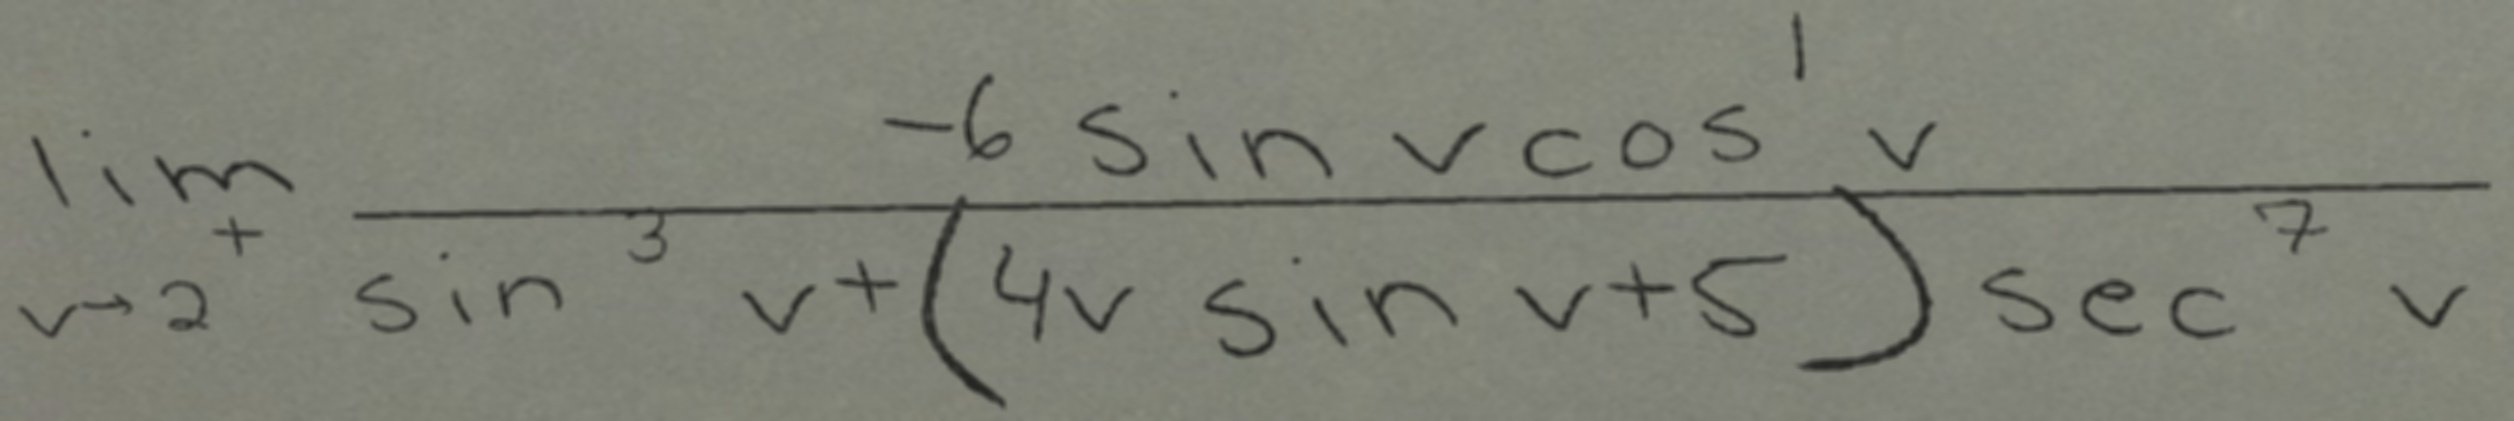 \lim_{v \to 2^{+}} \frac{-6 \sin v \cos^{1} v}{\sin^{3} v + (4v \sin v + 5) \sec^{7} v}